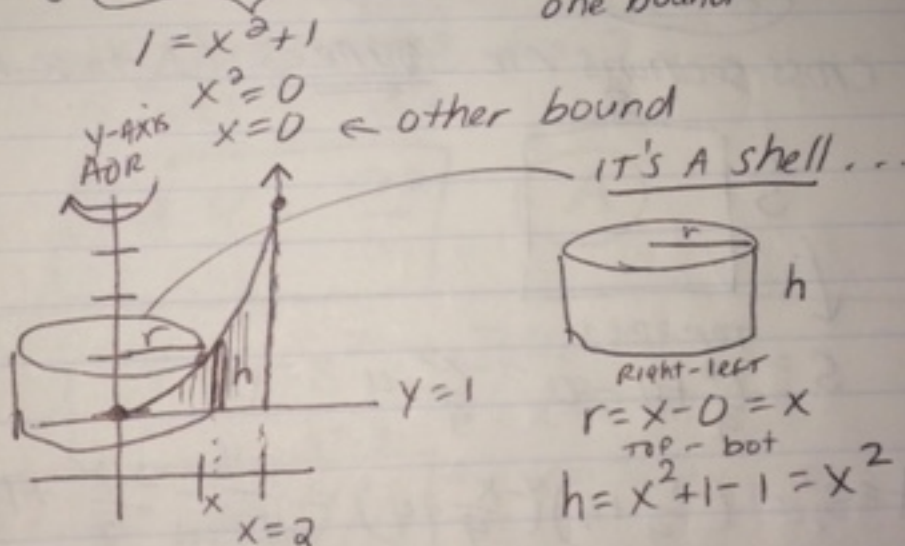 one bound
1 = x²+1
x² = 0
x = 0 ← other bound
y-axis
AOR
IT'S A shell...
r
h
r
h
y = 1
Right-left
r = x-0 = x
TOP - bot
h = x²+1-1 = x²
x
x = 2